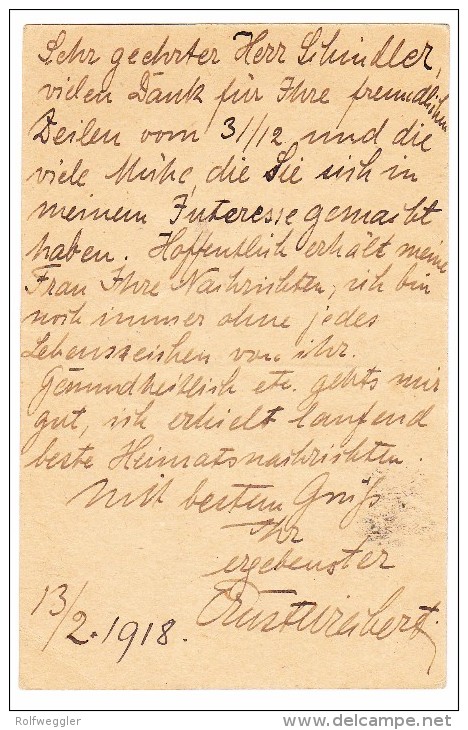 Sehr geehrter Herr Schindler,
vielen Dank für Ihre freundlichen
Zeilen vom 31/12 und die
viele Mühe, die Sie sich in
meinem Interesse gemacht
haben. Hoffentlich erhält meine
Frau Ihre Nachrichten, ich bin
noch immer ohne jedes
Lebenszeichen von ihr.
Gesundheitlich etc. gehts mir
gut, ich erhielt laufend
beste Heimatsnachrichten.
Mit bestem Gruß
Ihr
ergebenster
Ernst
13/2.1918.
Rolfweggler
delcampe.net